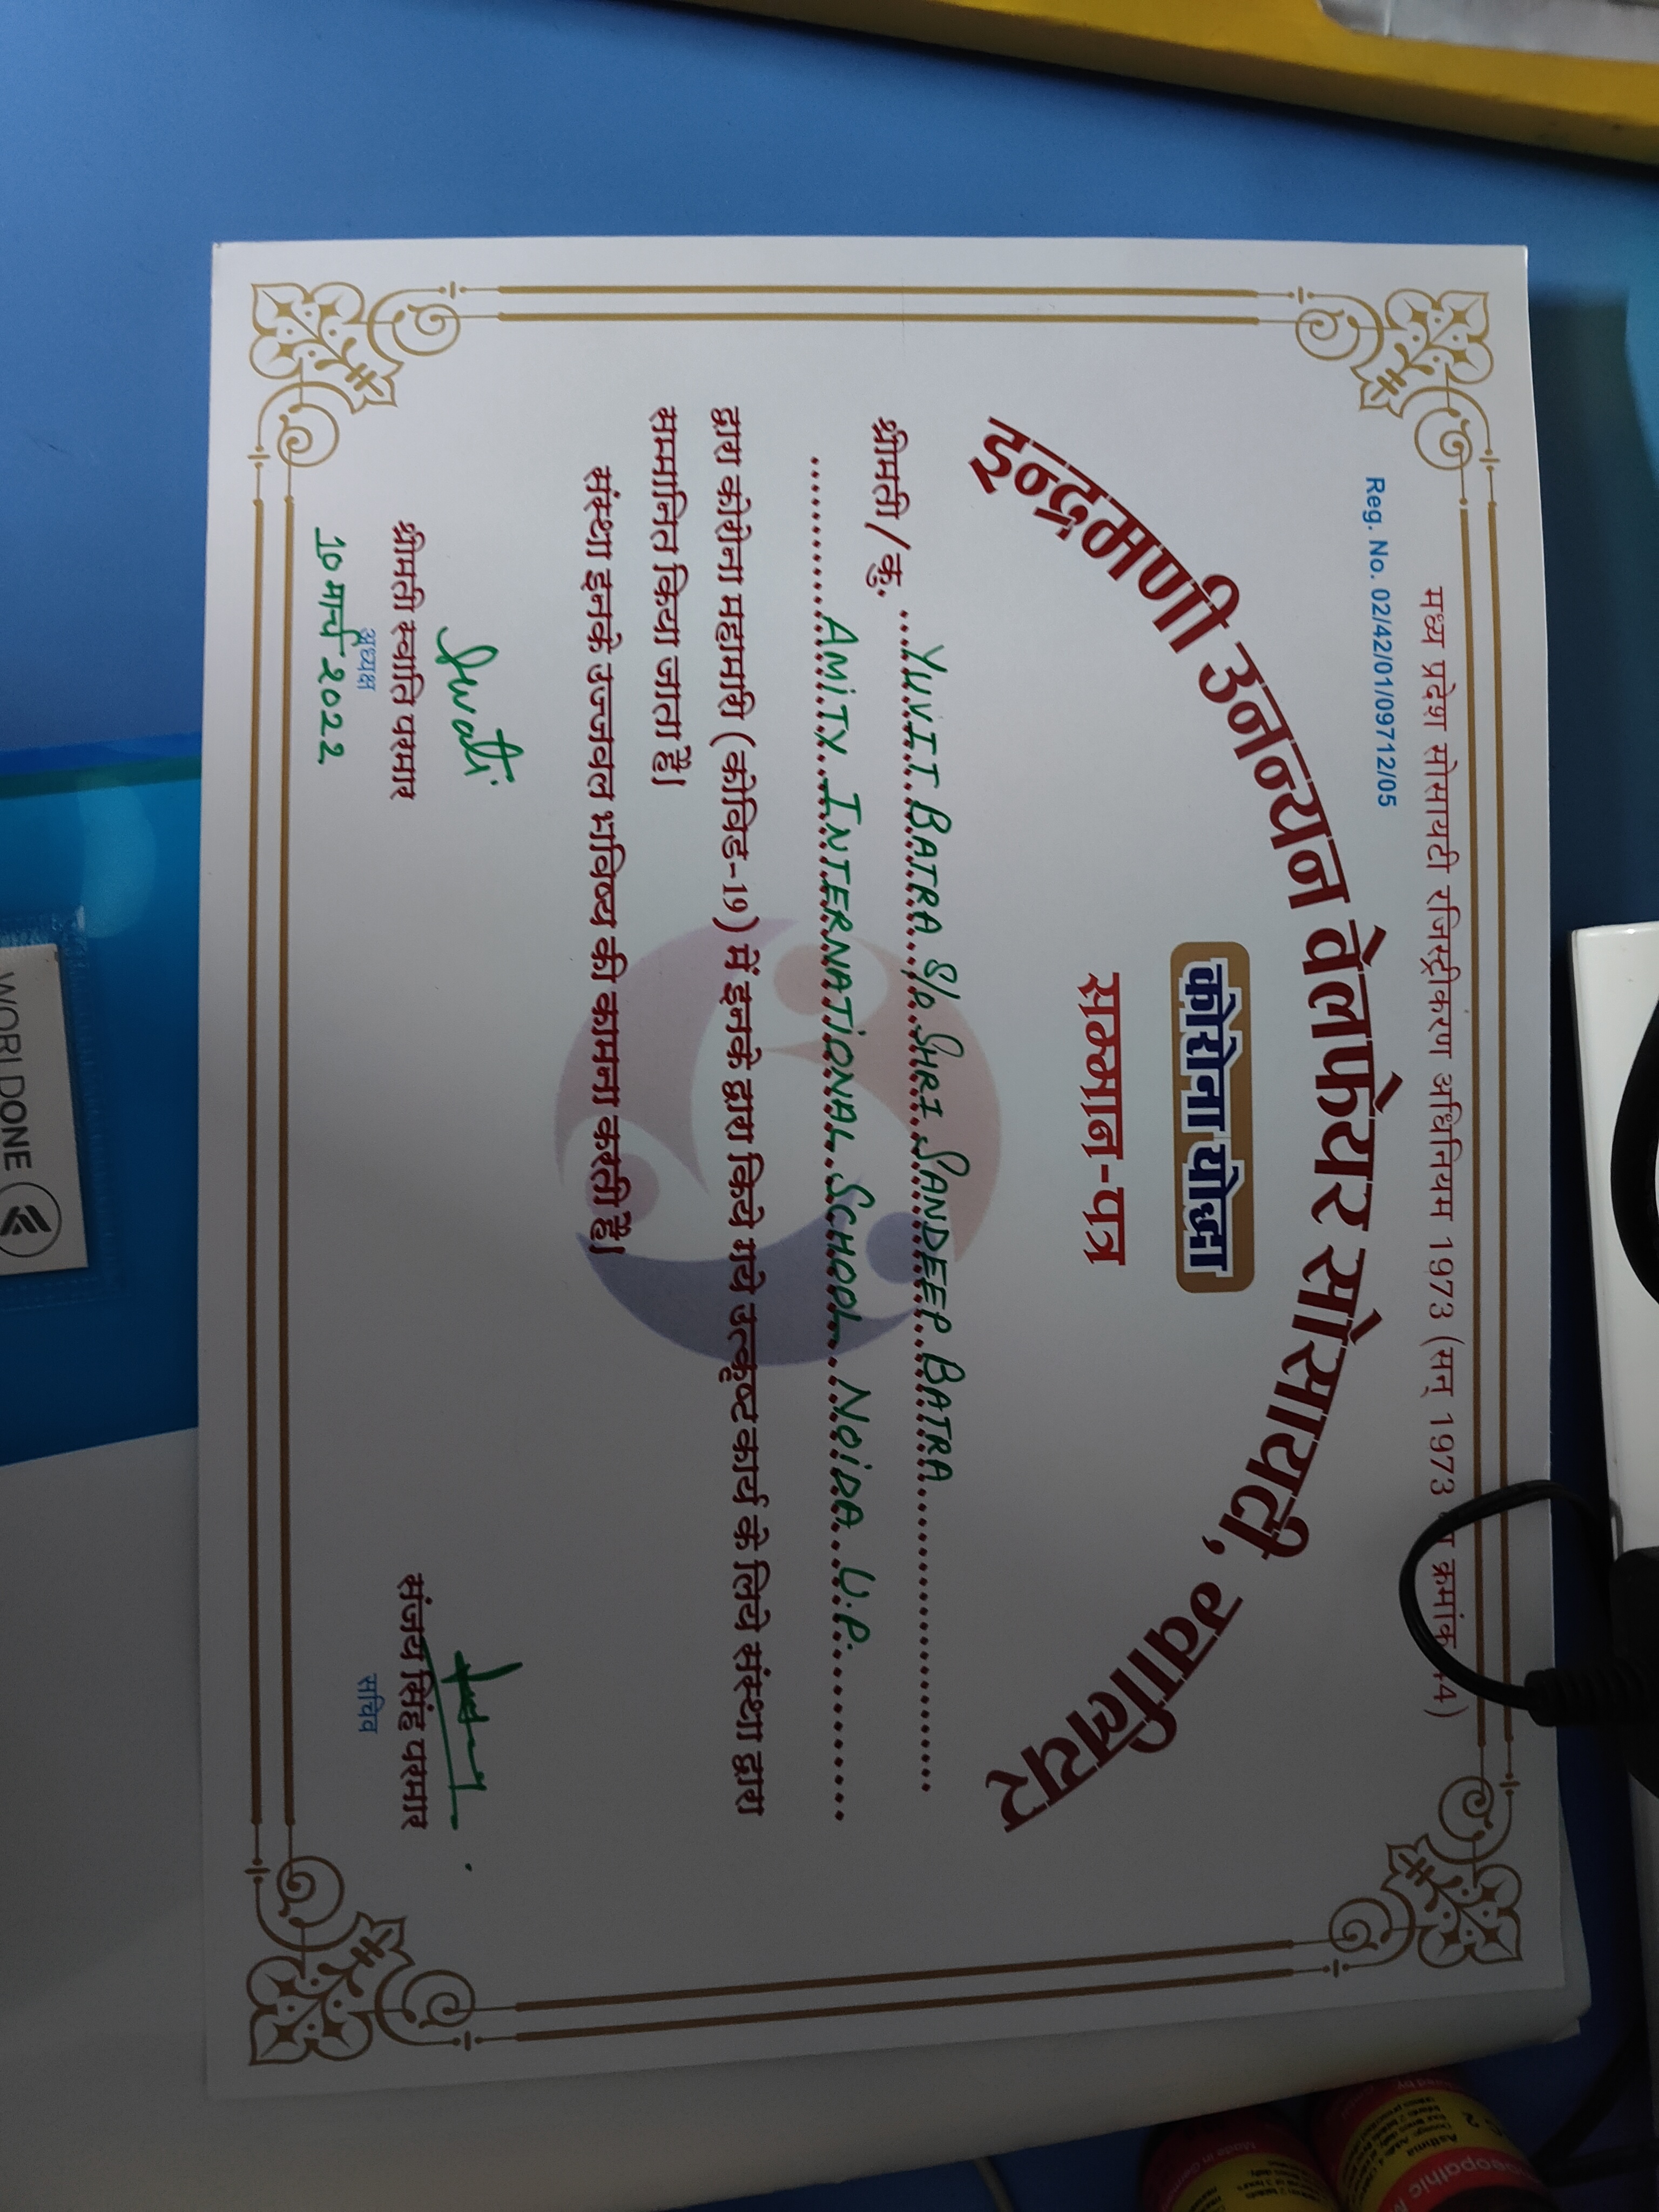 मध्य प्रदेश सोसायटी रजिस्ट्रीकरण अधिनियम 1973 (सन् 1973 क्रमांक 44)
Reg. No. 02/42/01/09712/05
इन्द्रमणी उन्नयन वेलफेयर सोसायटी, ग्वालियर
कोरोना योद्धा
सम्मान-पत्र
श्रीमती / कु. YUVIT BATRA S/o SHRI SANDEEP BATRA
AMITY INTERNATIONAL SCHOOL NOIDA U.P.
द्वारा कोरोना महामारी (कोविड-19) में इनके द्वारा किये गये उत्कृष्ट कार्य के लिये संस्था द्वारा
सम्मानित किया जाता है।
संस्था इनके उज्जवल भविष्य की कामना करती है।
Swati
श्रीमती स्वाति परमार
अध्यक्ष
10 मार्च 2022
संजय सिंह परमार
सचिव
WORLDONE
Asthma
Made in